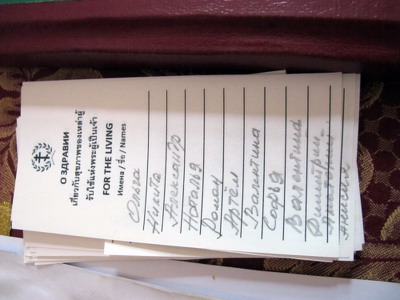 О ЗДРАВИИ
เกี่ยวกับสุขภาพของเหล่าผู้
รับใช้แห่งพระผู้เป็นเจ้า
FOR THE LIVING
Имена / ชื่อ / Names
Ольга
Никита
Александр
Наталья
Роман
Артём
Валентина
Софья
Валентина
Димитрий
Анисия